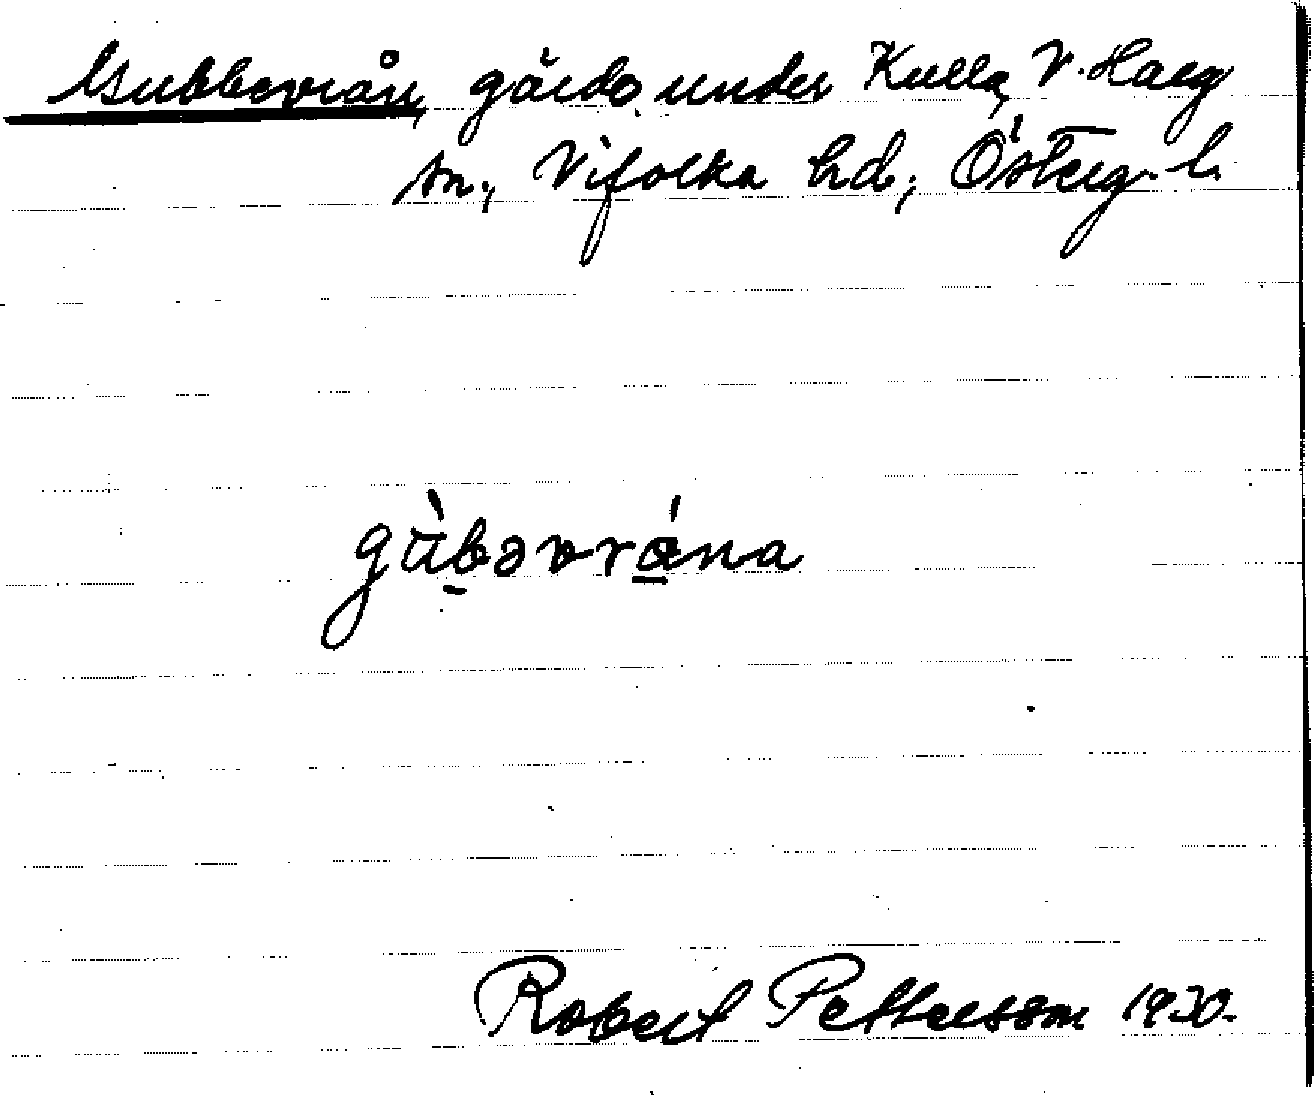 Gubbevrån, gärde under Kulla, V. Harg
sn, Vifolka hd, Österg. l.
gùbəvrána
Robert Pettersson 1930.